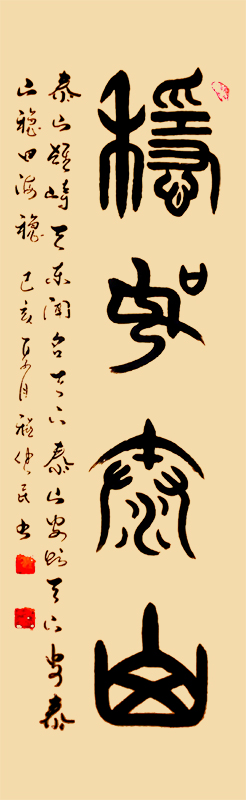 穩如泰山
泰山雄峙天东闻名天下泰山安则天下安泰
山穩四海穩 己亥夏月 程仲民书